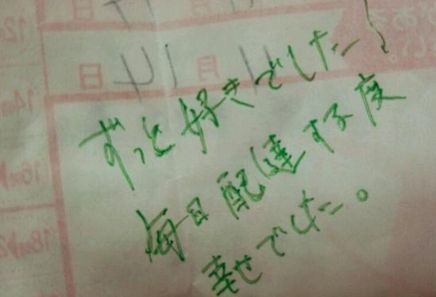 月 14 日
ずっと好きでした
毎日配達する度
幸せでした。